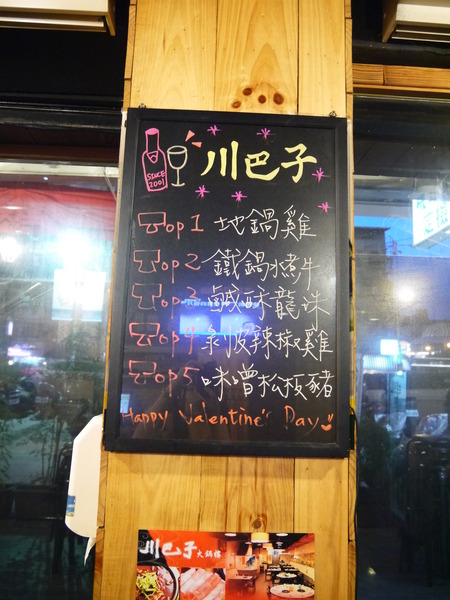 SINCE
2001
川巴子
Top 1 地鍋雞
Top 2 鐵鍋煮牛
Top 3 鹹酥龍珠
Top 4 剝皮辣椒雞
Top 5 味噌松板豬
Happy Valentine's Day
川巴子火鍋樓